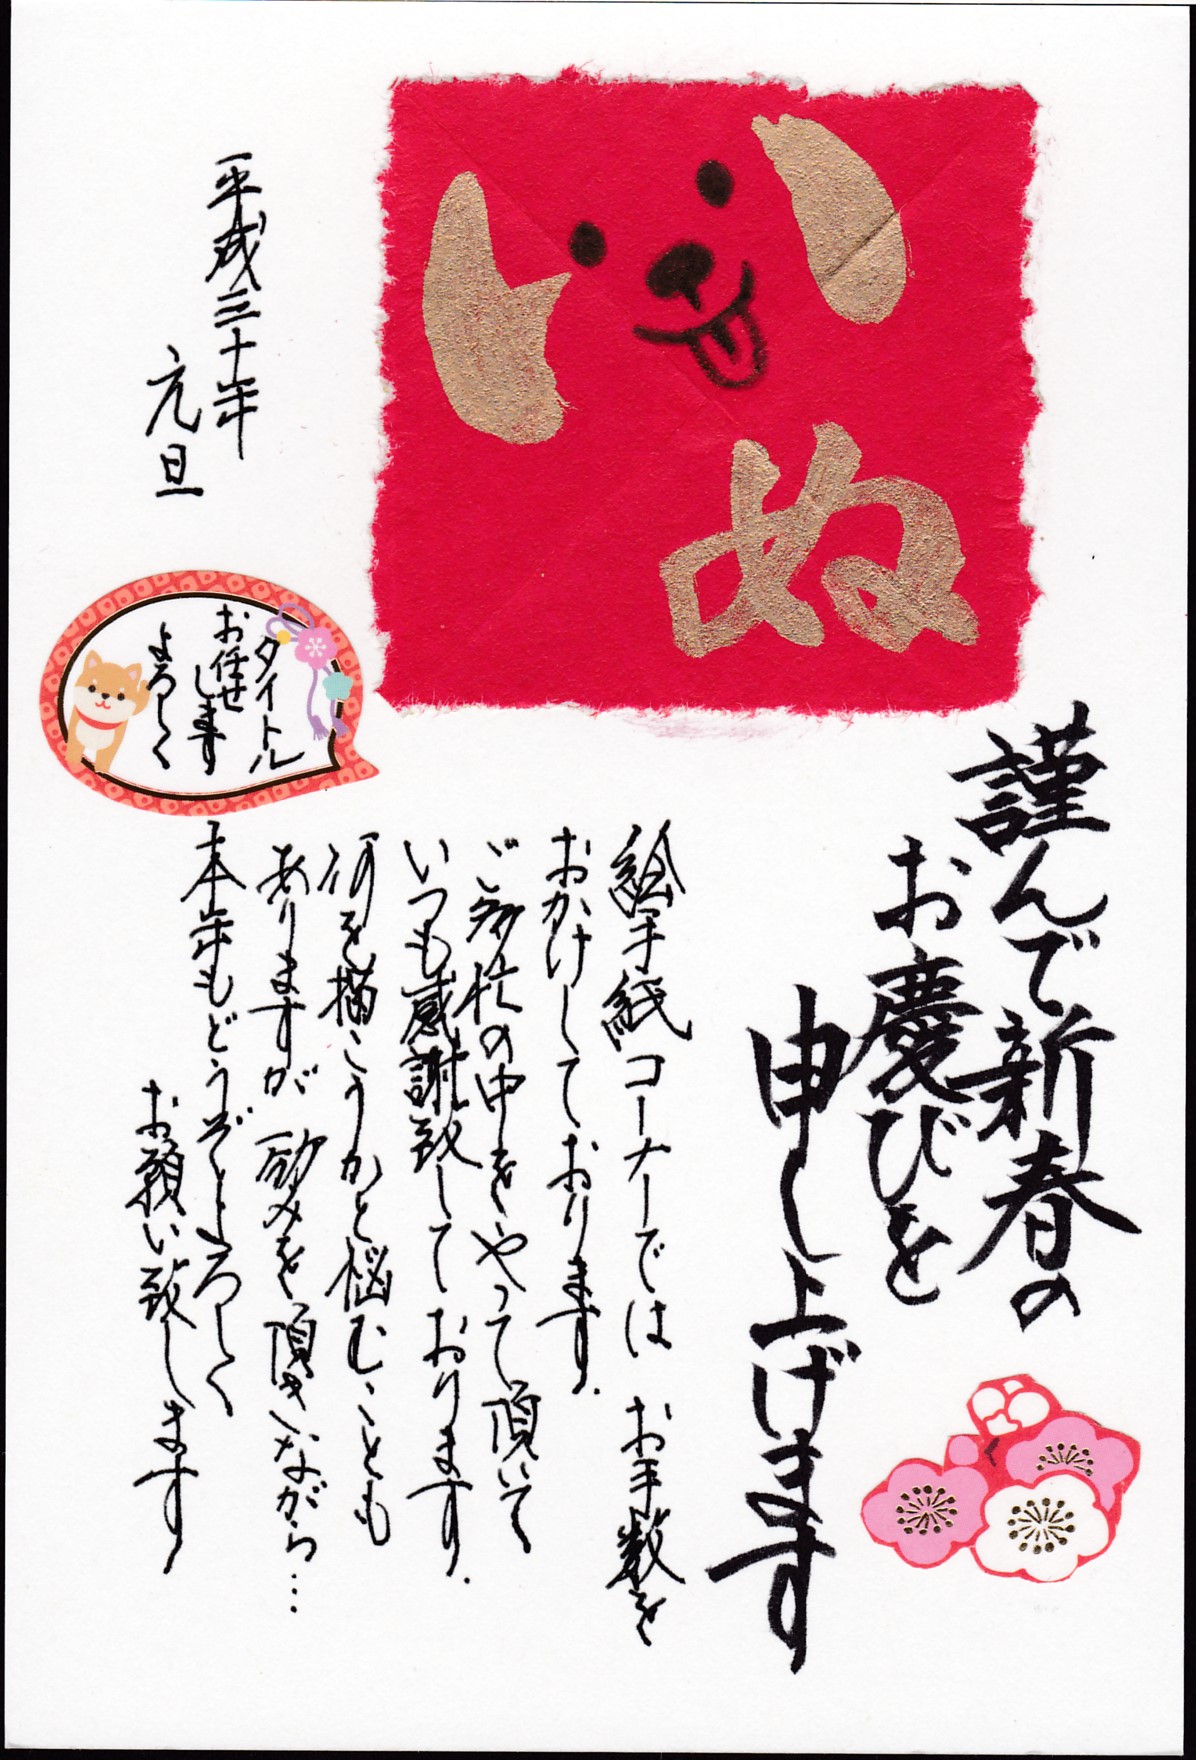 いぬ
謹んで新春の
お慶びを
申し上げます
絵手紙コーナーでは お手数を
おかけしております.
ご多忙の中をやって頂いて
いつも感謝致しております.
何を描こうかと悩むことも
ありますが 励みを頂きながら…
本年もどうぞよろしく
お願い致します
平成三十年
元旦
タイトル
お任せ
します
よろしく